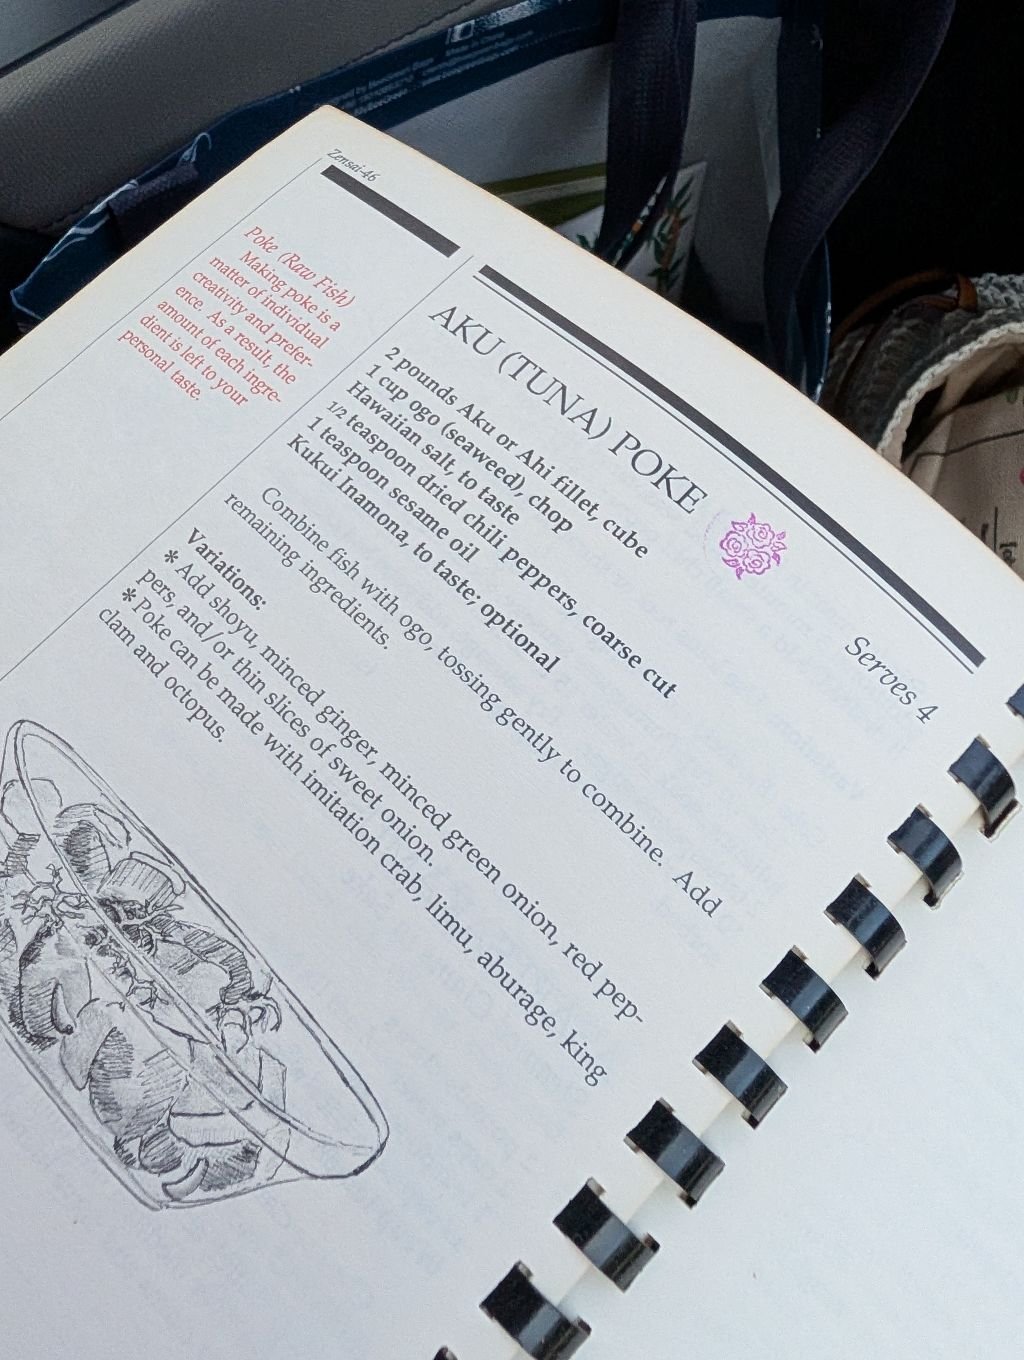 Zensai-46
Poke (Raw Fish)
Making poke is a
matter of individual
creativity and prefer-
ence. As a result, the
amount of each ingre-
dient is left to your
personal taste.
AKU (TUNA) POKE
Serves 4
2 pounds Aku or Ahi fillet, cube
1 cup ogo (seaweed), chop
Hawaiian salt, to taste
1/2 teaspoon dried chili peppers, coarse cut
1 teaspoon sesame oil
Kukui Inamona, to taste; optional
Combine fish with ogo, tossing gently to combine. Add
remaining ingredients.
Variations:
* Add shoyu, minced ginger, minced green onion, red pep-
pers, and/or thin slices of sweet onion.
* Poke can be made with imitation crab, limu, aburage, king
clam and octopus.
Made in China